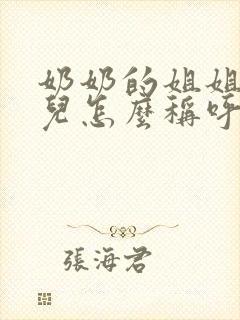 奶奶的姐姐
兒怎麼稱呼
張海君